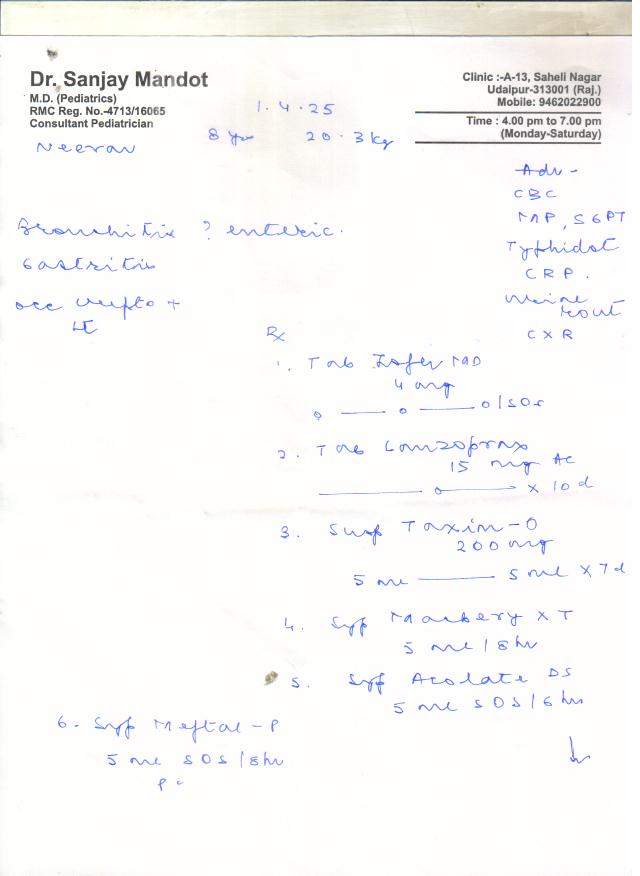 Dr. Sanjay Mandot
M.D. (Pediatrics)
RMC Reg. No.-4713/16065
Consultant Pediatrician
Clinic :-A-13, Saheli Nagar
Udaipur-313001 (Raj.)
Mobile: 9462022900
Time : 4.00 pm to 7.00 pm
(Monday-Saturday)
1.4.25
Neerav
8 yrs 20.3 kg
Bronchitis ? enteric.
Gastritis
occ
Adv -
CBC
MP, SGPT
Typhidot
CRP.
Urine
Rout
CXR
Rx
1. Tab Zofer MD
4 mg
0 — 0 — 0/SOS
2. Tab Lanzoprax
15 mg AC
— 0 — x 10 d
3. Susp Taxim-O
200 mg
5 ml — 5 ml x 7 d
4. Syp XT
5 ml / 8 hr
5. Syp DS
5 ml SOS / 6 hr
6. Syp Meftal-P
5 ml SOS / 8 hr